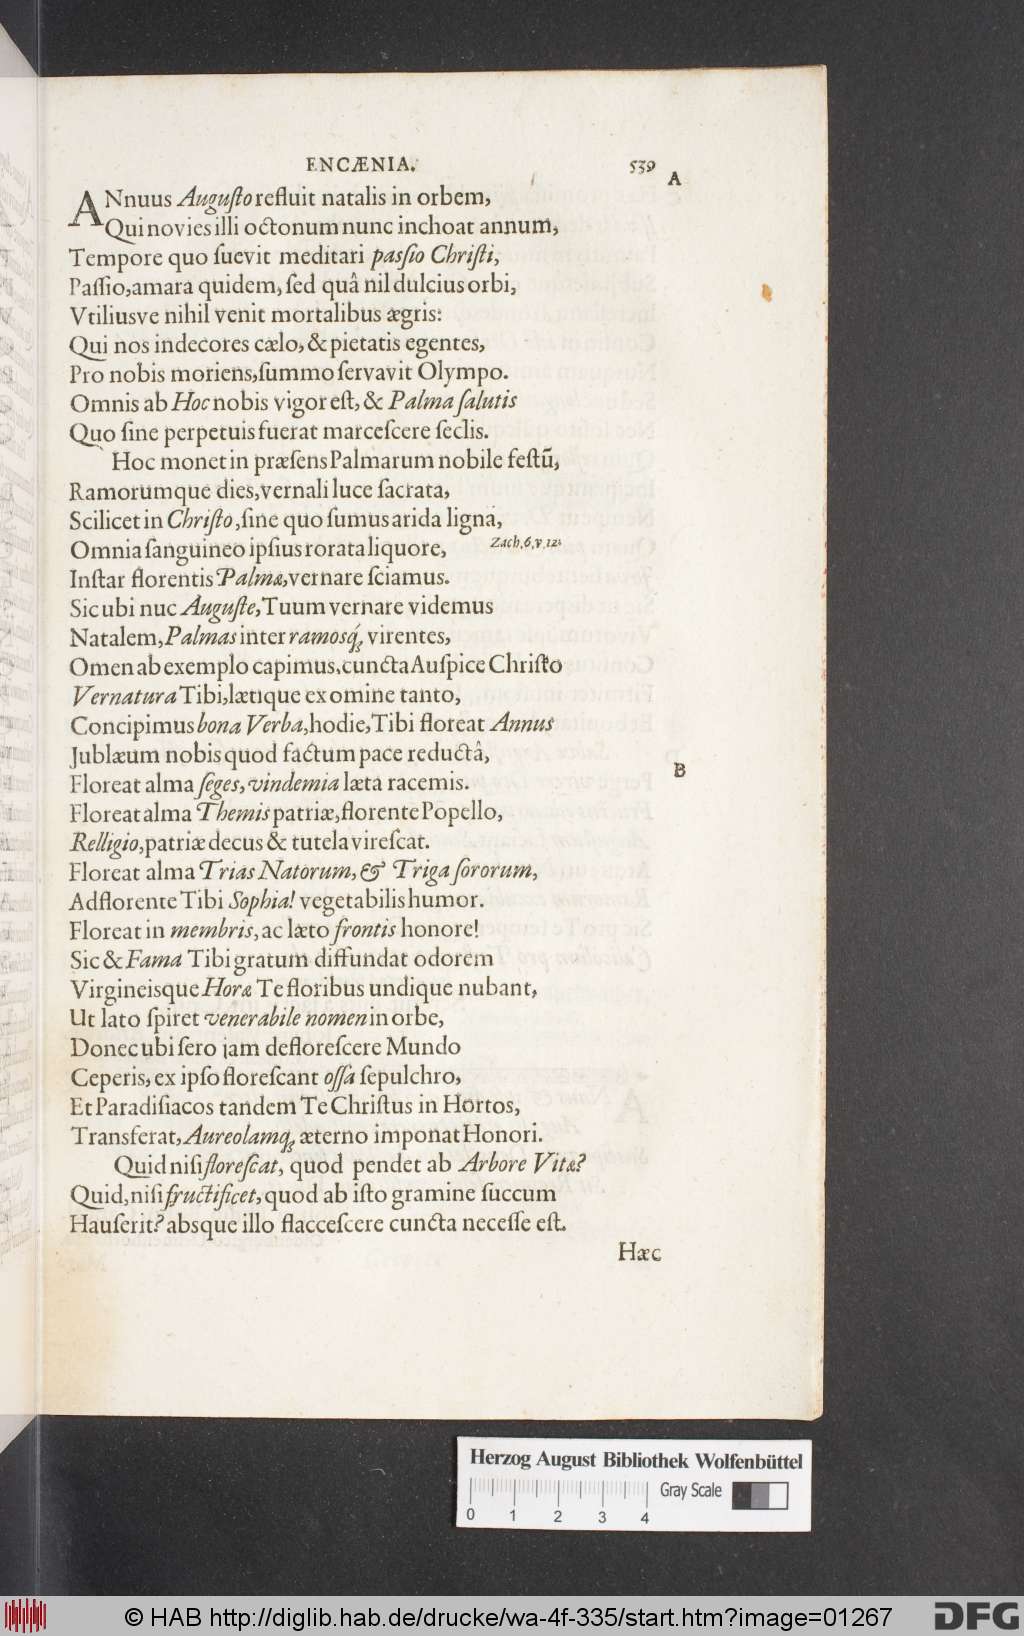 ENCÆNIA. 539
A
ANnuus Auguſto refluit natalis in orbem,
Qui novies illi octonum nunc inchoat annum,
Tempore quo ſuevit meditari paſſio Chriſti,
Paſſio, amara quidem, ſed quâ nil dulcius orbi,
Vtiliusve nihil venit mortalibus ægris:
Qui nos indecores cælo, & pietatis egentes,
Pro nobis moriens, ſummo ſervavit Olympo.
Omnis ab Hoc nobis vigor eſt, & Palma ſalutis
Quo ſine perpetuis fuerat marceſcere ſeclis.
Hoc monet in præſens Palmarum nobile feſtũ,
Ramorumque dies, vernali luce ſacrata,
Scilicet in Chriſto, ſine quo ſumus arida ligna,
Omnia ſanguineo ipſius rorata liquore, Zach. 6, v. 12:
Inſtar florentis Palmæ, vernare ſciamus.
Sic ubi nuc Auguſte, Tuum vernare videmus
Natalem, Palmas inter ramosq́ꝫ virentes,
Omen ab exemplo capimus, cuncta Auſpice Chriſto
Vernatura Tibi, lætique ex omine tanto,
Concipimus bona Verba, hodie, Tibi floreat Annus
Jublæum nobis quod factum pace reductâ,
B
Floreat alma ſeges, vindemia læta racemis.
Floreat alma Themis patriæ, florente Popello,
Relligio, patriæ decus & tutela vireſcat.
Floreat alma Trias Natorum, & Triga ſororum,
Adflorente Tibi Sophia! vegetabilis humor.
Floreat in membris, ac læto frontis honore!
Sic & Fama Tibi gratum diffundat odorem
Virgineisque Horæ Te floribus undique nubant,
Ut lato ſpiret venerabile nomen in orbe,
Donec ubi ſero jam defloreſcere Mundo
Ceperis, ex ipſo floreſcant oſſa ſepulchro,
Et Paradiſiacos tandem Te Chriſtus in Hortos,
Transferat, Aureolamqꝫ æterno imponat Honori.
Quid niſi floreſcat, quod pendet ab Arbore Vitæ?
Quid, niſi fructificet, quod ab iſto gramine ſuccum
Hauſerit? absque illo flacceſcere cuncta neceſſe eſt.
Hæc
Herzog August Bibliothek Wolfenbüttel
Gray Scale
0 1 2 3 4
© HAB http://diglib.hab.de/drucke/wa-4f-335/start.htm?image=01267 DFG